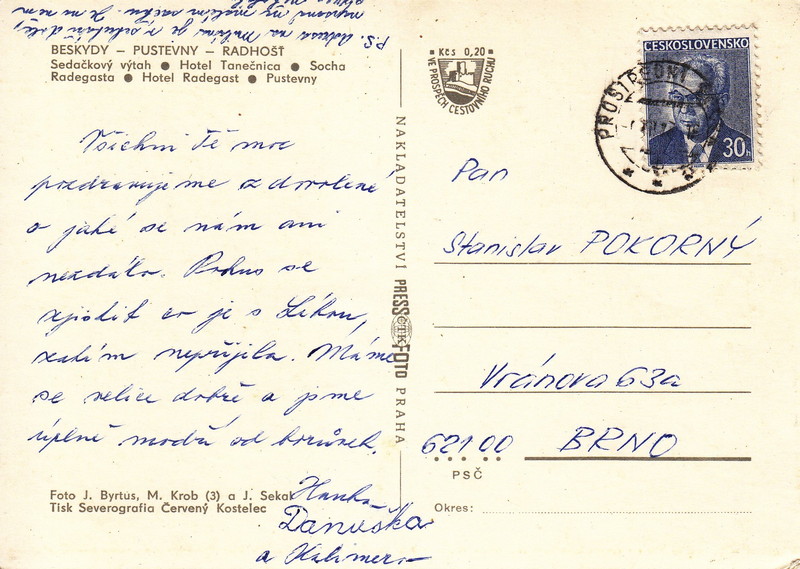 BESKYDY – PUSTEVNY – RADHOŠŤ
Sedačkový výtah ● Hotel Tanečnica ● Socha
Radegasta ● Hotel Radegast ● Pustevny
Všichni Tě moc
pozdravujeme z dovolené
o jaké se nám ani
nezdálo.
se
zjistit co je s
zatím nepřijela. Máme
se velice dobře a jsme
úplně modrá od borůvek.
Hanka
Danuška
a Kalimero
Foto J. Byrtus, M. Krob (3) a J. Sekal
Tisk Severografia Červený Kostelec
P.S. Adresa na
je
NAKLADATELSTVÍ PRESSFOTO PRAHA
ČTK
Kčs 0,20
VE PROSPĚCH CESTOVNÍHO RUCHU
ČESKOSLOVENSKO
30h
PROSTŘEDNÍ
Pan
Stanislav POKORNÝ
Vránova 63a
621 00 BRNO
PSČ
Okres: